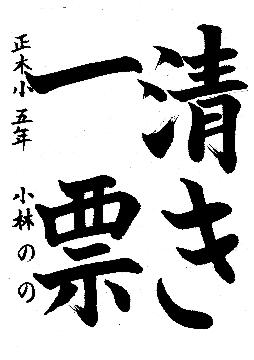 清き
一票
正木小 五年 小林のの